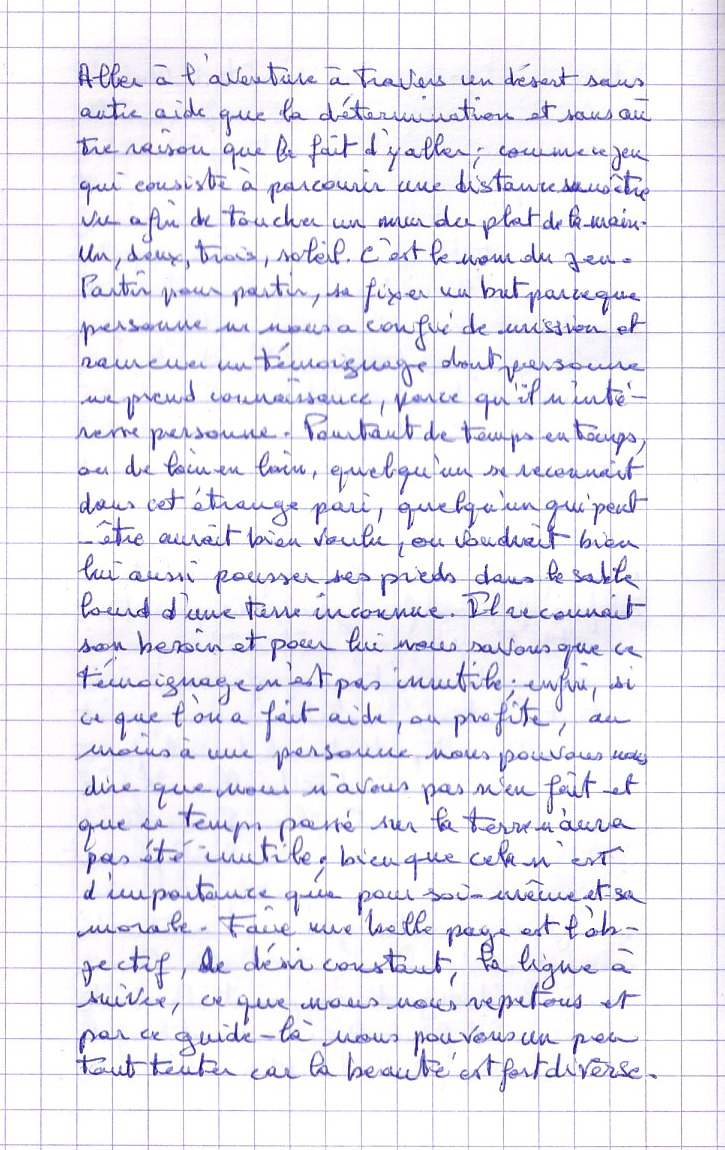 Aller à l'aventure à travers un désert sans
autre aide que la détermination et sans au
tre raison que le fait d'y aller ; comme ce jeu
qui consiste à parcourir une distance sans être
vu afin de toucher un mur du plat de la main.
Un, deux, trois, soleil. C'est le nom du jeu.
Partir pour partir, se fixer un but parce que
personne ne nous a confié de mission et
ramener un témoignage dont personne
ne prend connaissance, parce qu'il n'inté-
resse personne. Pourtant de temps en temps,
ou de loin en loin, quelqu'un se reconnait
dans cet étrange pari, quelqu'un qui peut
-être aurait bien voulu, ou voudrait bien
lui aussi pousser ses pieds dans le sable
lourd d'une terre inconnue. Il reconnait
son besoin et pour lui nous savons que ce
témoignage n'est pas inutile ; enfin, si
ce que l'on a fait aide, ou profite, au
moins à une personne nous pouvons nous
dire que nous n'avons pas rien fait et
que ce temps passé sur la terre n'aura
pas été inutile ; bien que cela n'est
d'importance que pour soi-même et sa
morale. Faire une belle page est l'ob-
jectif, le désir constant, la ligne à
suivre, ce que nous nous repetons et
par ce guide-là nous pouvons un peu
tout tenter car la beauté est fort diverse.